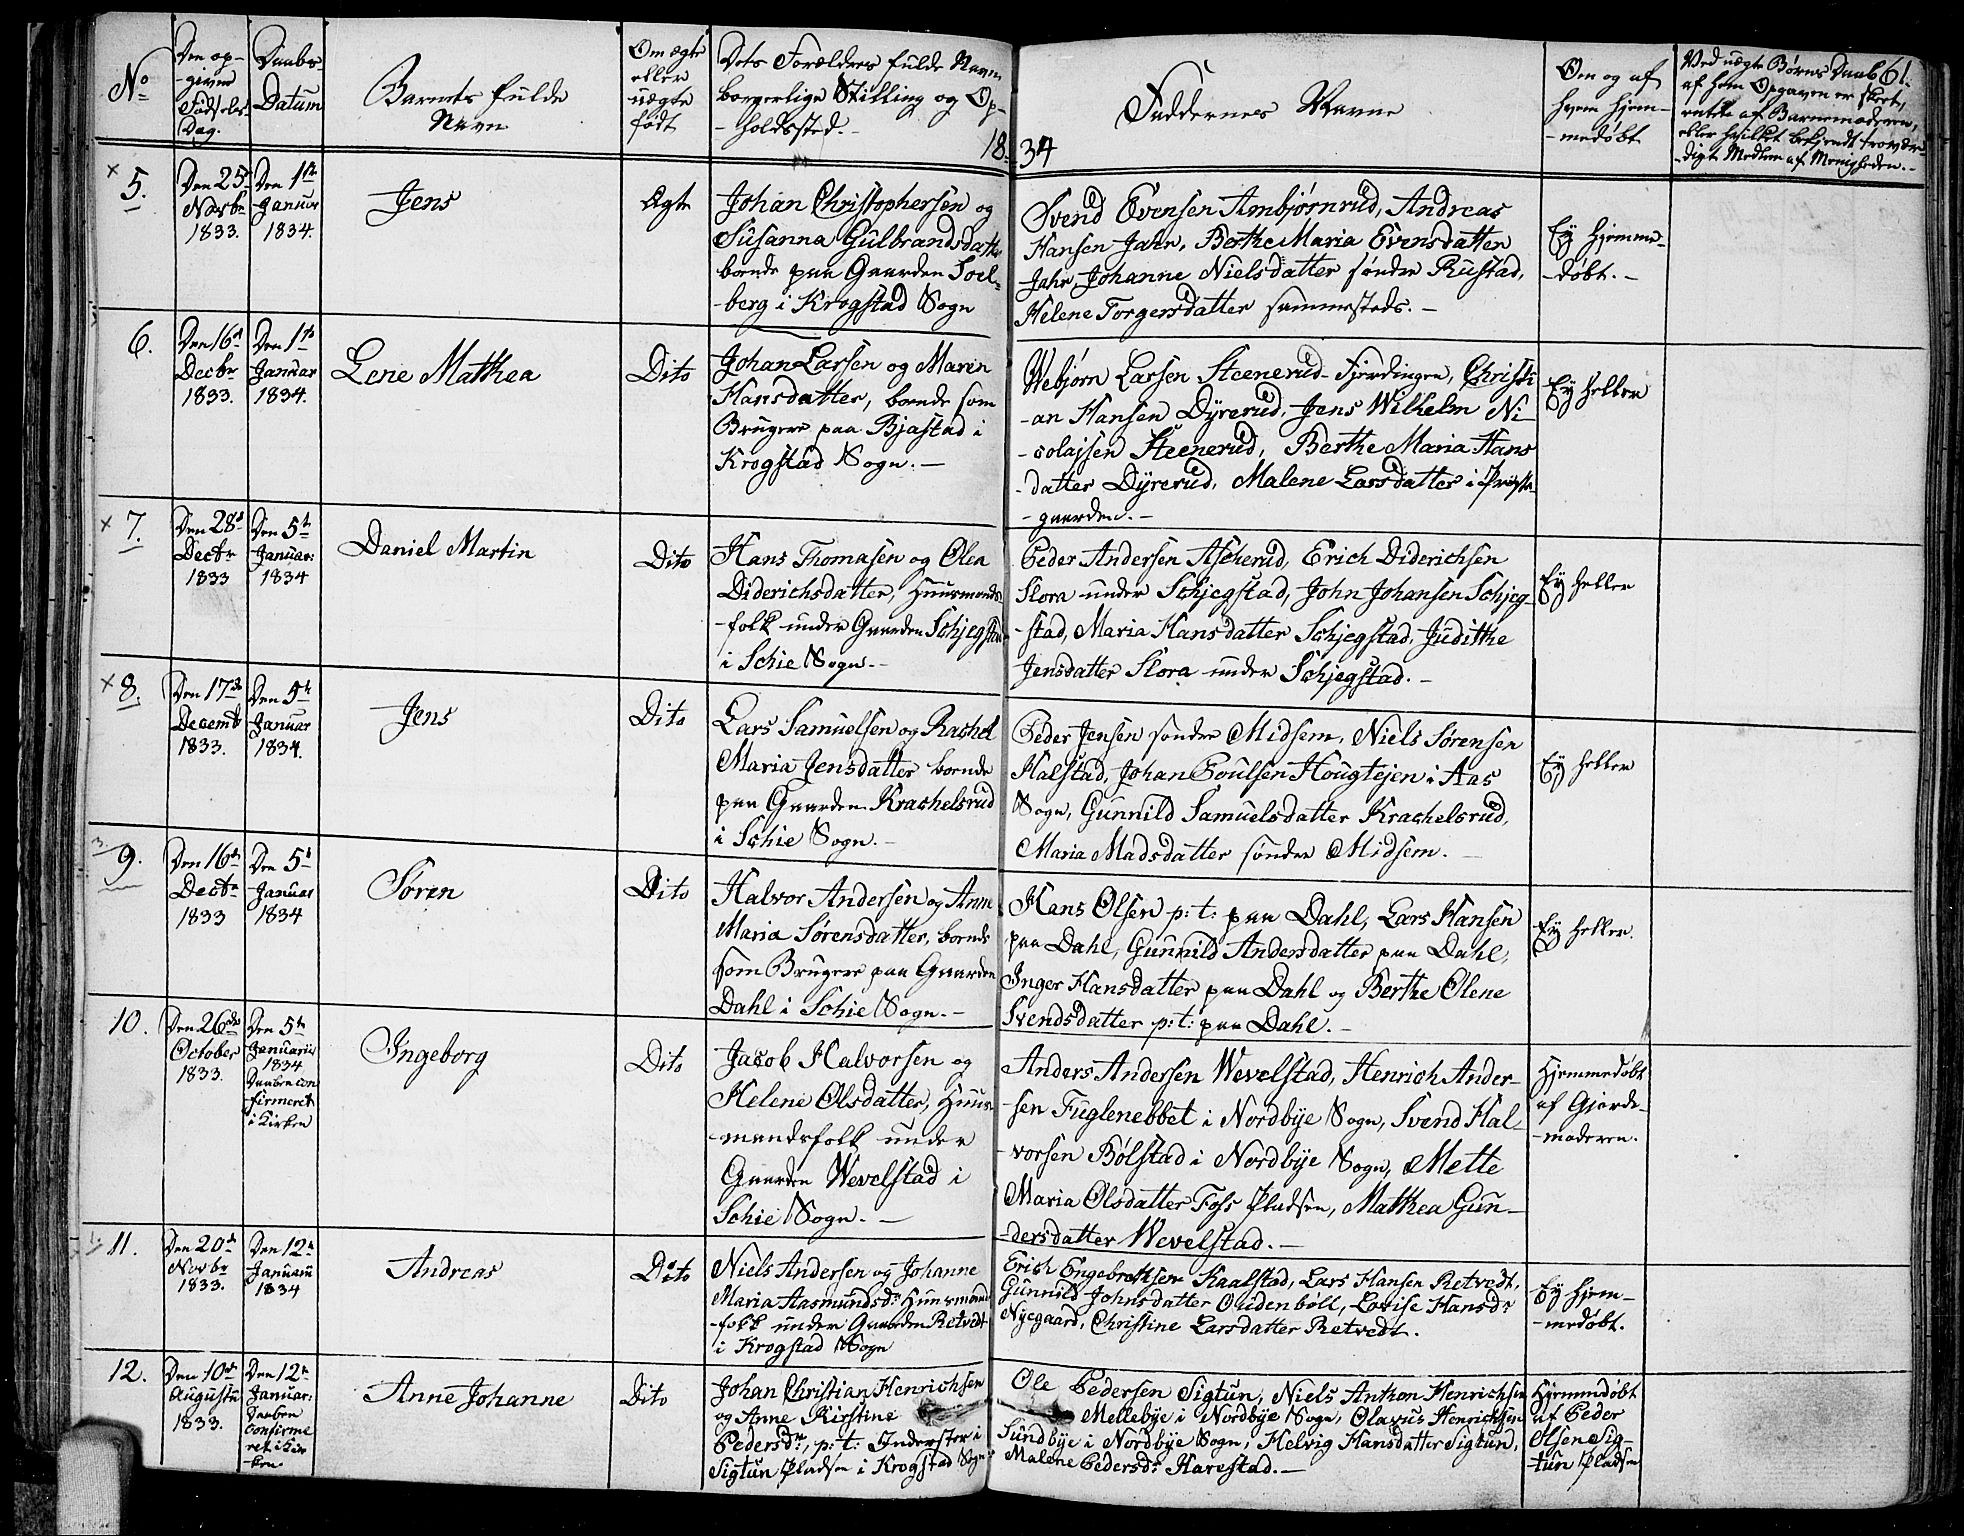 No
Den op-
-givne
Fødsels-
Dag.
Daabs-
Datum
Barnets fulde
Navn
Om ægte
eller
uægte
født
Dets Forældres fulde Navn
borgerlige Stilling og Op-
-holdssted.-
18
34
Faddernes Navne
Om og af
hvem hjem-
-medøbt
Ved uægte Børns Daab 61.
af hem Opgaven er skeet,
enten af Barnemoderen,
eller hvilket bekjendt trovær-
-digt Medlem af Menigheden.-
× 5.
Den 25
Novbr
1833.
Den 1te
Januar
1834.
Jens
Ægte
Johan Christophersen og
Susanna Gulbrandsdatter
boende paa Gaarden Soel-
-berg i Krogstad Sogn
Svend Evensen Ambjørnrud, Andreas
Hansen Jahr, Berthe Maria Evensdatter
Jahr, Johanne Nielsdatter søndre Rustad,
Helene Torgersdatter sammesteds.-
Ey hjemme-
-døbt.-
6.
Den 16d
Decbr
1833.
Den 1te
Januar
1834.
Lene Mathea
Dito
Johan Larsen og Maren
Hansdatter, boende som
Brugere paa Bjastad i
Krogstad Sogn.-
Webjørn Larsen Steenerud-Fjerdingen, Christi
-an Hansen Dyrerud, Jens Wilhelm Ni-
-colajsen Steenerud, Berthe Maria Hans
-datter Dyrerud, Malene Larsdatter i Præste-
-gaarden.-
Ey heller
× 7.
Den 28d
Decbr
1833
Den 5te
Januar:
1834
Daniel Martin
Dito
Hans Thomasen og Olea
Diderichsdatter, Huusmands
-folk under Gaarden Schjegstad
i Schie Sogn.-
Peder Andersen Ascherud, Erich Diderichsen
Slora under Schjegstad, John Johansen Schjeg-
-stad, Maria Hansdatter Schjegstad, Judithe
Jensdatter Slora under Schjegstad.-
Ey heller
× 8.
Den 17de
Decemb
1833.
Den 5te
Januar
1834.
Jens
Dito
Lars Samuelsen og Rachel
Maria Jensdatter boende
paa Gaarden Krachelsrud
i Schie Sogn.-
Peder Jensen søndre Midsem, Niels Sørensen
Halstad, Johan Poulsen Hougtejen i Aas
Sogn, Gunnild Samuelsdatter Krachelsrud,
Maria Madsdatter søndre Midsem.-
Ey heller
9.
Den 16de
Decbr
1833
Den 5te
Januar
1834
Søren
Dito
Halvor Andersen og Anne
Maria Sørensdatter, boende
som Brugere paa Gaarden
Dahl i Schie Sogn.-
Hans Olsen p: t: paa Dahl, Lars Hansen
paa Dahl, Gunnild Andersdatter paa Dahl,
Inger Hansdatter paa Dahl og Berthe Olene
Svendsdatter p: t: paa Dahl.-
Ey heller.
10.
Den 26de
October
1833.
Den 5te
Januarii
1834
Daaben con
firmeret
i Kirken
Ingeborg
Dito
Jacob Halvorsen og
Helene Olsdatter, Huus-
-mandsfolk under
Gaarden Wevelstad i
Schie Sogn.-
Anders Andersen Wevelstad, Henrich Ander-
-sen Fuglenebbet i Nordbye Sogn, Svend Hal-
-vorsen Bølstad i Nordbye Sogn, Mette
Maria Olsdatter Foss Pladsen, Mathea Gun-
-dersdatter Wevelstad.-
Hjemmedøbt
af Gjorde-
-moderen.
11.
Den 20de
Novbr
1833.
Den 12te
Januarii
1834
Andreas
Dito
Niels Andersen og Johanne
Maria Aasmundsdr Huusmands
-folk under Gaarden Retvedt
i Krogstad Sogn
Erich Engebrethsen Kaalstad, Lars Hansen Retvedt,
Gunnild Johnsdatter Oudenbøll, Lovise Hansdr
Nyegaard, Christine Larsdatter Retvedt.
Ey hjem-
-medøbt.
12.
Den 10de
Augusti
1833.
Den 12te
Januar:
Daaben
Confirme
ret i Kir
-ken
Anne Johanne
Dito
Johan Christian Henrichsen
og Anne Kirstine
Pedersdr, p: t: Inderster i
Sigtun Pladsen i Krogstad Sogn
Ole Pedersen Sigtun, Niels Anthon Henrichsen
Mellebye i Nordbye Sogn, Olavus Henrichsen
Sundbye i Nordbye Sogn, Helvig Hansdatter Sigtun,
Malene Pedersdr Harestad.-
Hjemmedøbt
af Peder
Olsen Sig-
-tun Pladsen